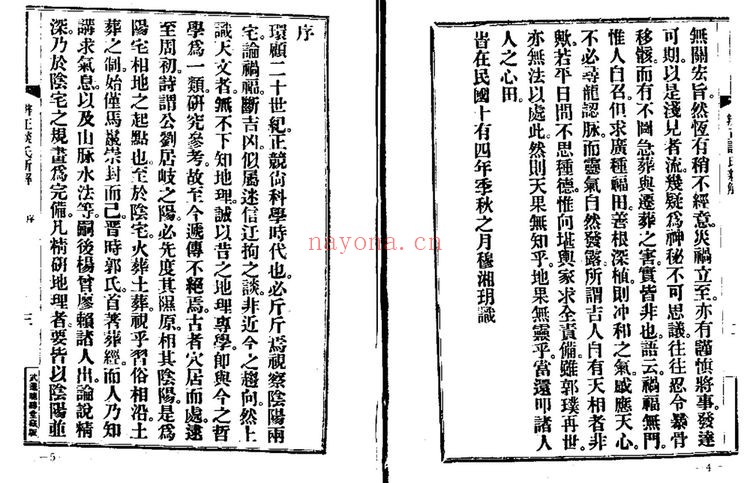 無關宏旨然恆有稍不經意災禍立至亦有謹慎將事發達
可期以是淺見者流幾疑爲神秘不可思議往往忍令暴骨
移骸而有不圖急葬與遷葬之害實皆非也語云禍福無門
惟人自召但求廣種福田善根深植則冲和之氣感應天心
不必尋龍認脈而靈氣自然發露所謂吉人自有天相者非
歟若平日間不思種德惟向堪輿家求全責備雖郭璞再世
亦無法以處此然則天果無知乎地果無靈乎當還叩諸人
人之心田
旹在民國十有四年季秋之月穆湘玥識
二
—4—
序
環顧二十世紀正競尙科學時代也必斤斤焉視察陰陽兩
宅論禍福斷吉凶似屬迷信迂拘之談非近今之趨向然上
識天文者無不下知地理誠以昔之地理專學卽與今之哲
學爲一類研究參考故至今遞傳不絕焉古者穴居而處逮
至周初詩謂公劉居岐之陽必先度其隰原相其陰陽是爲
陽宅相地之起點也至於陰宅火葬土葬視乎習俗相沿土
葬之制始僅馬鬛崇封而已晉時郭氏首著葬經而人乃知
講求氣息以及山脉水法等嗣後楊曾廖賴諸人出論說精
深乃於陰宅之規畫爲完備凡精研地理者要皆以陰陽並
辨正談氏新解
序
三
—5—
nayona.cn